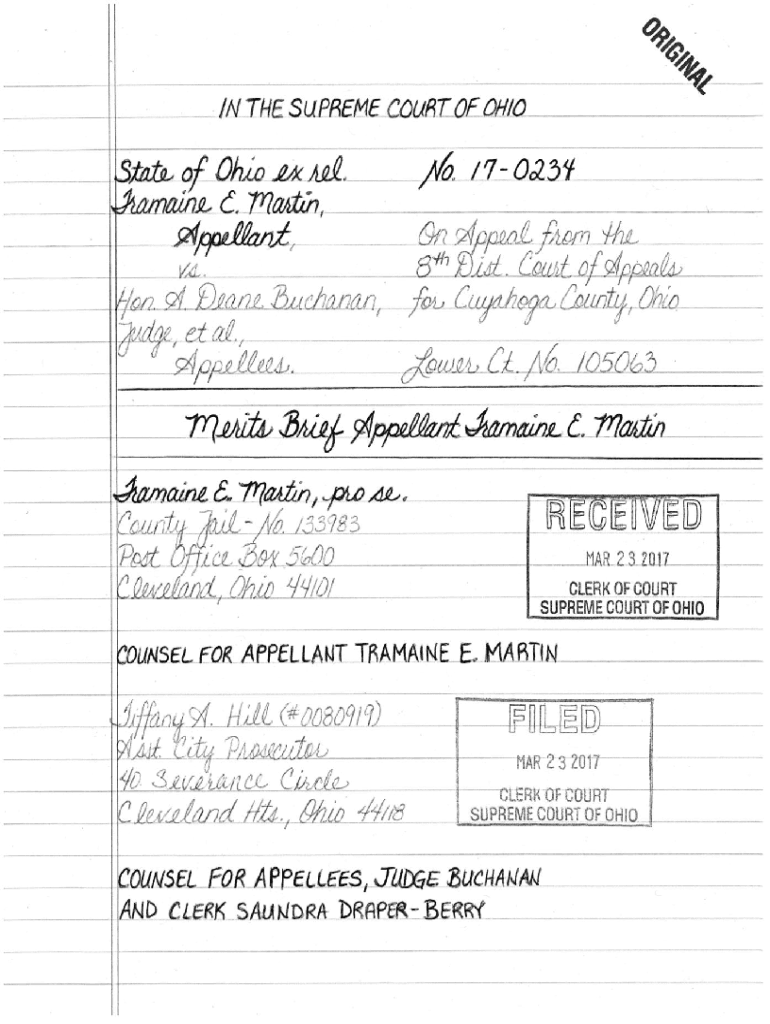 ORIGINAL
IN THE SUPREME COURT OF OHIO
State of Ohio ex rel.
Tramaine E. Martin,
Appellant,
vs.
Hon. A. Deane Buchanan,
Judge, et al.,
Appellees.
No. 17-0234
On Appeal from the
8th Dist. Court of Appeals
for Cuyahoga County, Ohio
Lower Ct. No. 105063
Merits Brief Appellant Tramaine E. Martin
Tramaine E. Martin, pro se.
County Jail - No. 133983
Post Office Box 5600
Cleveland, Ohio 44101
RECEIVED
MAR 23 2017
CLERK OF COURT
SUPREME COURT OF OHIO
COUNSEL FOR APPELLANT TRAMAINE E. MARTIN
Tiffany A. Hill (#0080919)
Asst. City Prosecutor
40 Severance Circle
Cleveland Hts., Ohio 44118
FILED
MAR 23 2017
CLERK OF COURT
SUPREME COURT OF OHIO
COUNSEL FOR APPELLEES, JUDGE BUCHANAN
AND CLERK SAUNDRA DRAPER-BERRY